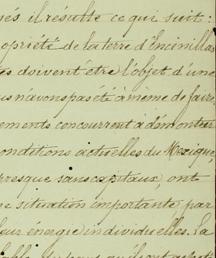 sés il résulte ce qui suit:
opriété de la terre d'Encinillas
es doivent être l'objet d'une
us n'avons pas été à même de faire
ements concourrent à démontrer
onditions actuelles du Mexique
resque sans capitaux, ont
ne situation importante par
eur énergie individuelles. La